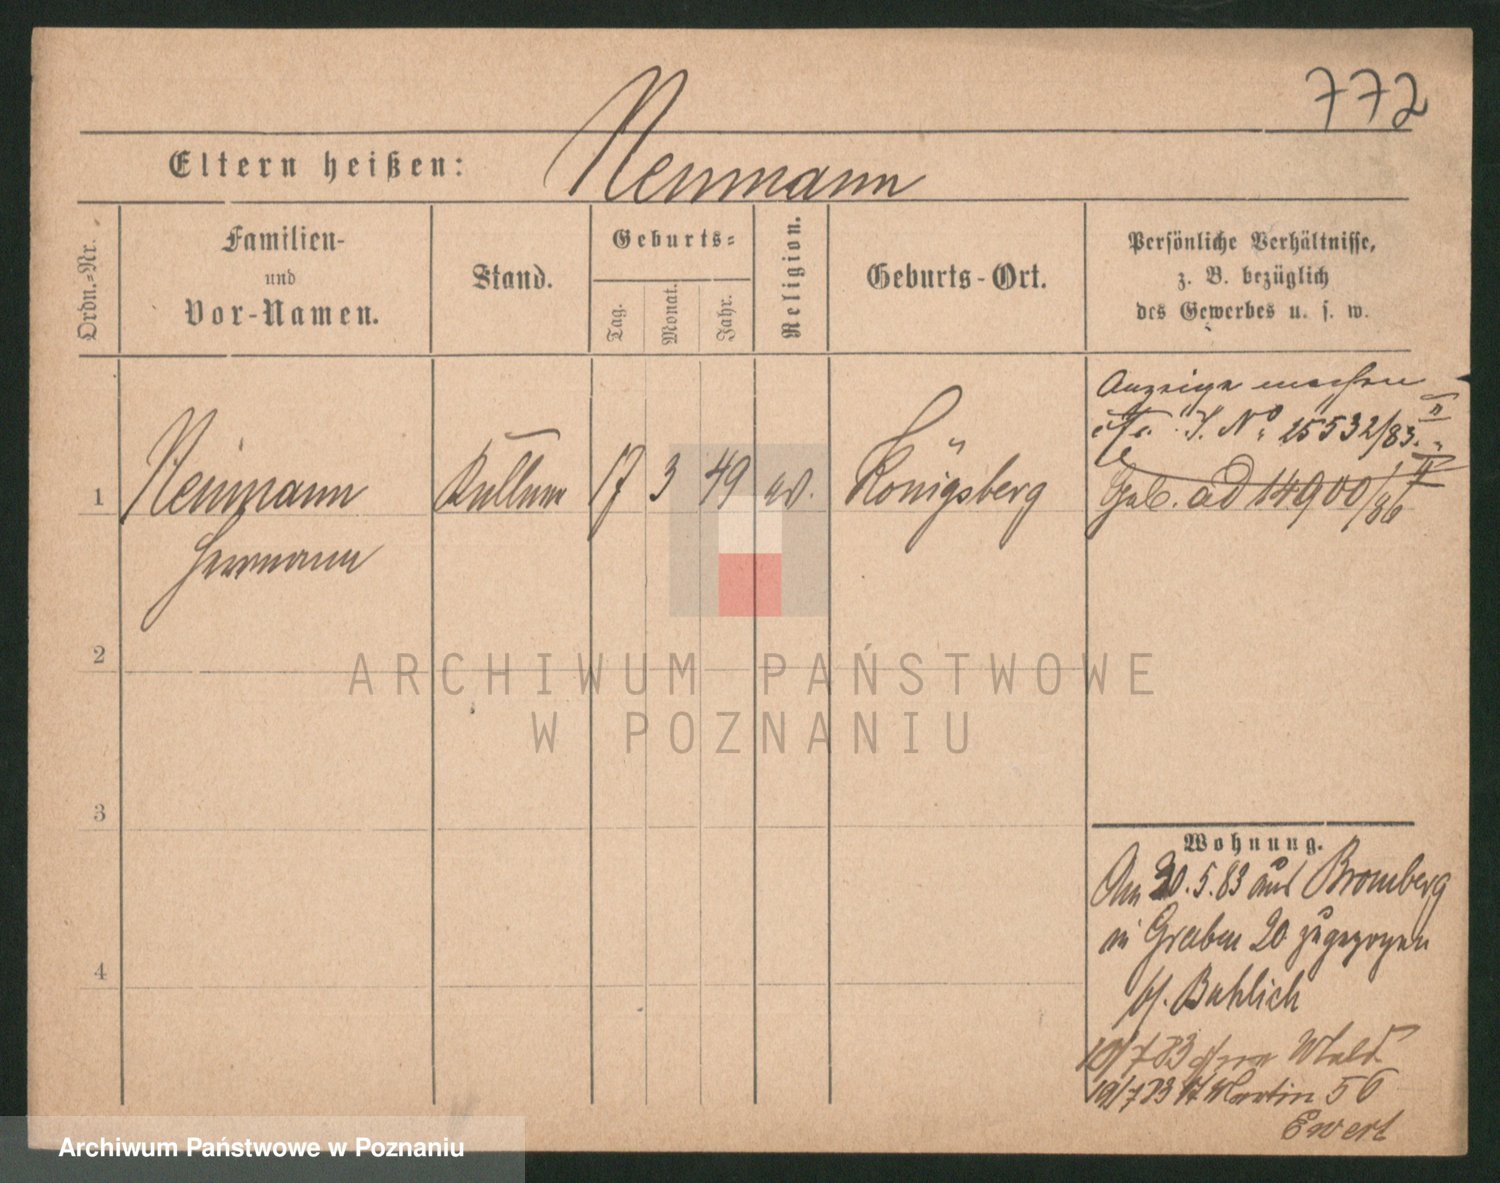 772
Eltern heißen: Neumann
Ordn.-Nr.
Familien-
und
Vor-Namen.
Stand.
Geburts-
Tag.
Monat.
Jahr.
Religion.
Geburts-Ort.
Persönliche Verhältnisse,
z. B. bezüglich
des Gewerbes u. s. w.
Anzeige machen
J. No 15532/83. II
1 Neumann Kellner 17 3 49 ev. Königsberg
ad 14900/86 II
Hermann
2
3
4
Wohnung.
Am 30.5.83 aus Bromberg
in Graben 20 zugezogen
bf. Bahlich
10/7 83
19/7 83 St Martin 56
Ewert
ARCHIWUM PAŃSTWOWE
W POZNANIU
Archiwum Państwowe w Poznaniu